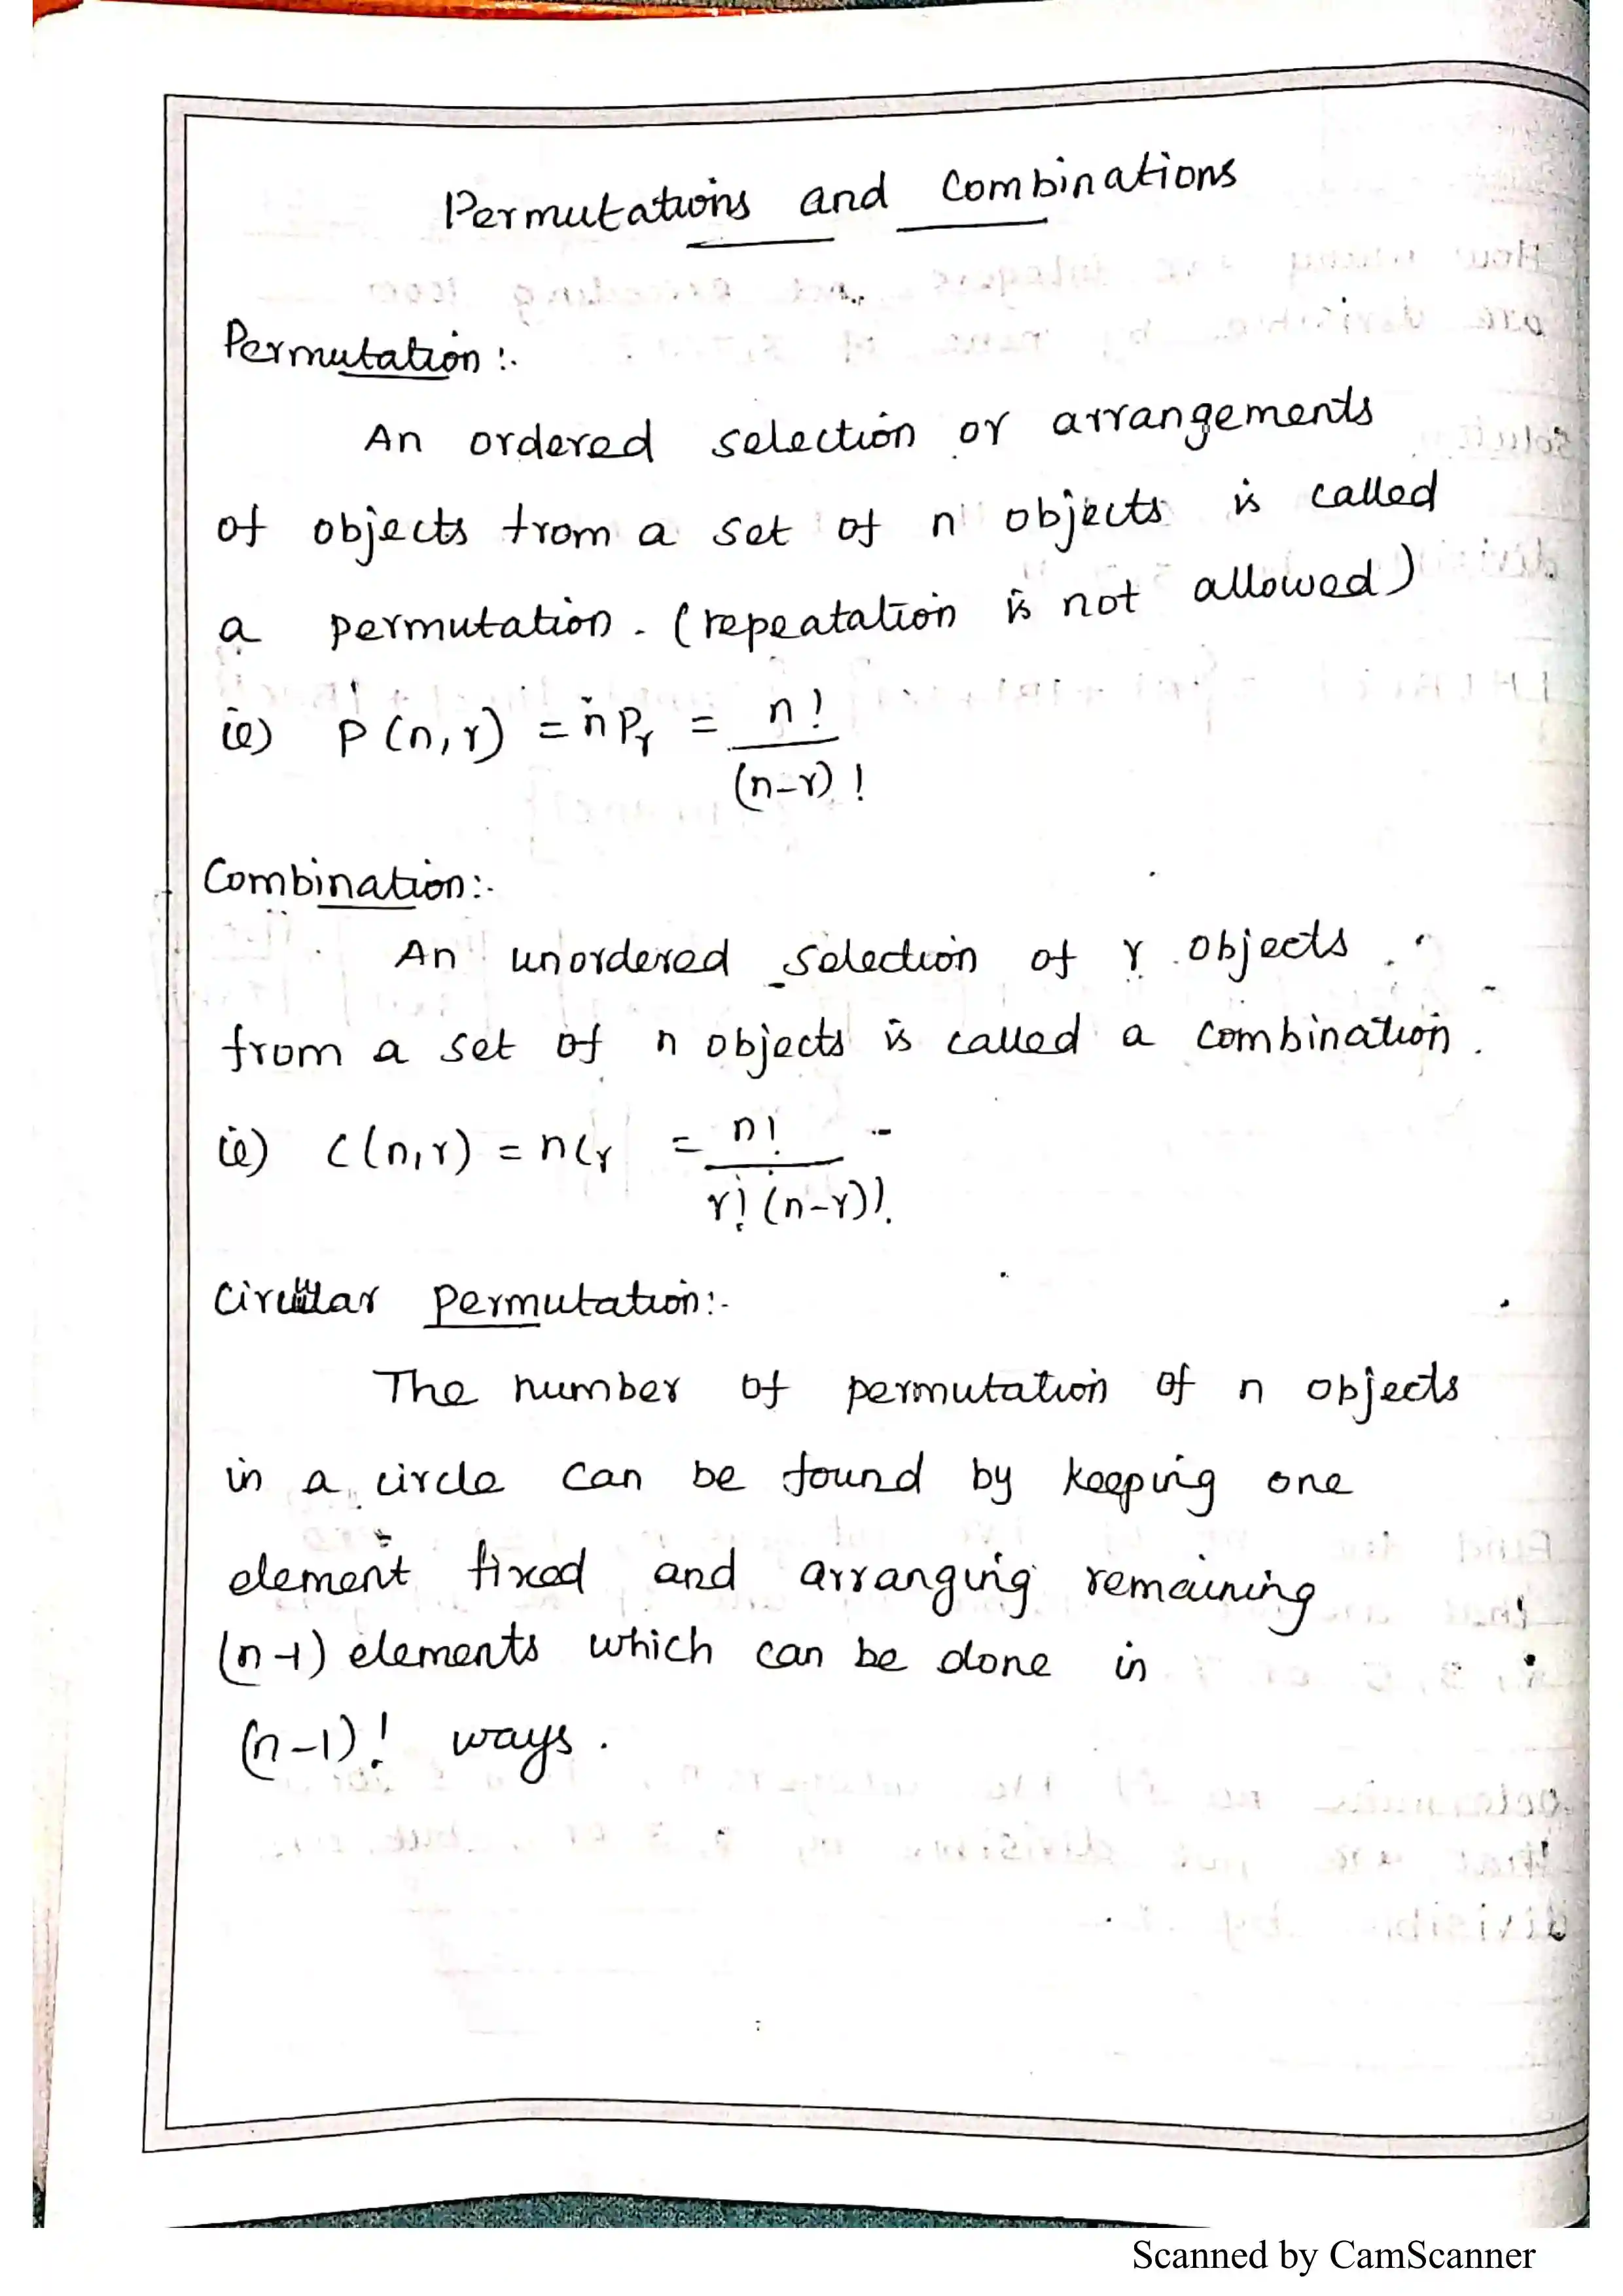 Permutations and Combinations
Permutation :-
An ordered selection or arrangements
of objects from a set of n objects is called
a permutation. (repeatation is not allowed)
ie) P(n,r) = nPr = n! / (n-r)!
Combination:-
An unordered selection of r objects
from a set of n objects is called a combination.
ie) C(n,r) = nCr = n! / r!(n-r)!
Circular permutation:-
The number of permutation of n objects
in a circle can be found by keeping one
element fixed and arranging remaining
(n-1) elements which can be done in
(n-1)! ways.
Scanned by CamScanner